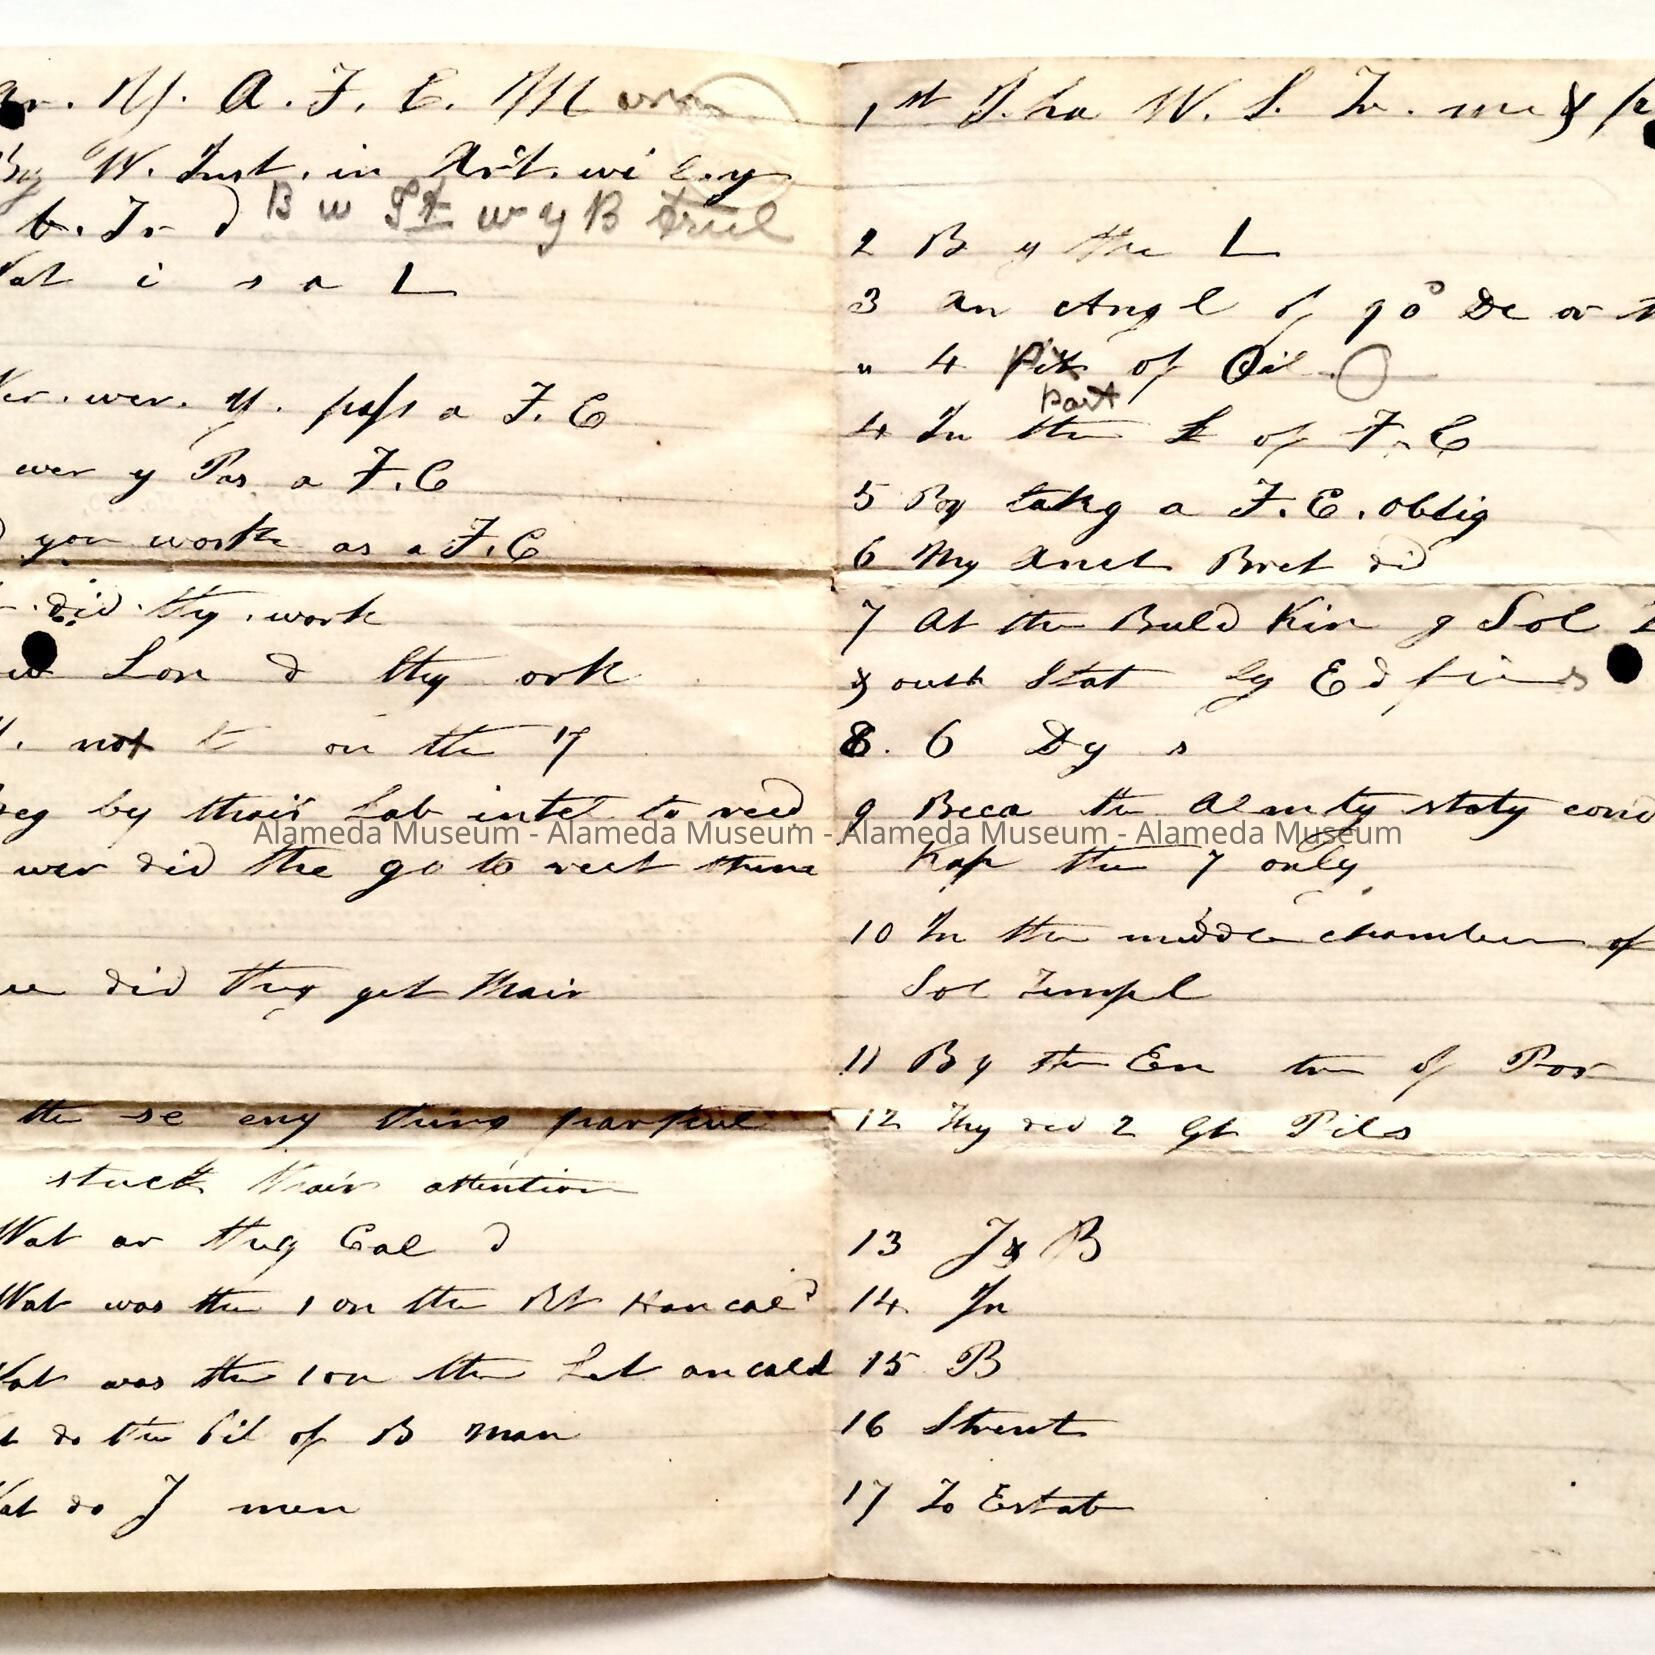 . Y. A. F. C. M
By W. Inst. in Art. wi
t. Tr d B w St w y B truel
at i s a L
wer. y. pass a F. C
wer y Pas a F. C
you work as a F. C
did thy. work
Lon d thy ork
. not on the 7
by thair Lab intel to reed
wer did the go to reet
did thy get thair
the se eny thing
stuck thair attention
Wat ar thy Cal d
Wat was the 1 on the Rt Han cal d
at was the 1 on the Left an cald
do the Pil of B man
at do J men
1st T. ha W. S. Tr. me &
2 B y the L
3 An Angl of 90° De or
" 4 Pit of Oil
part
4 In the L of F. C
5 By takg a F. C. oblig
6 My Anct Bret did
7 At the Buld Kin g Sol
& outh Stat ly Ed
8. 6 Dy s
9 Beca the Almty
Kap the 7 only
10 In the middle chamber of
Sol Templ
11 By the En of Por
12 Thy ded 2 Gt Pils
13 J & B
14 Jn
15 B
16 Strent
17 To Estab
Alameda Museum - Alameda Museum - Alameda Museum - Alameda Museum